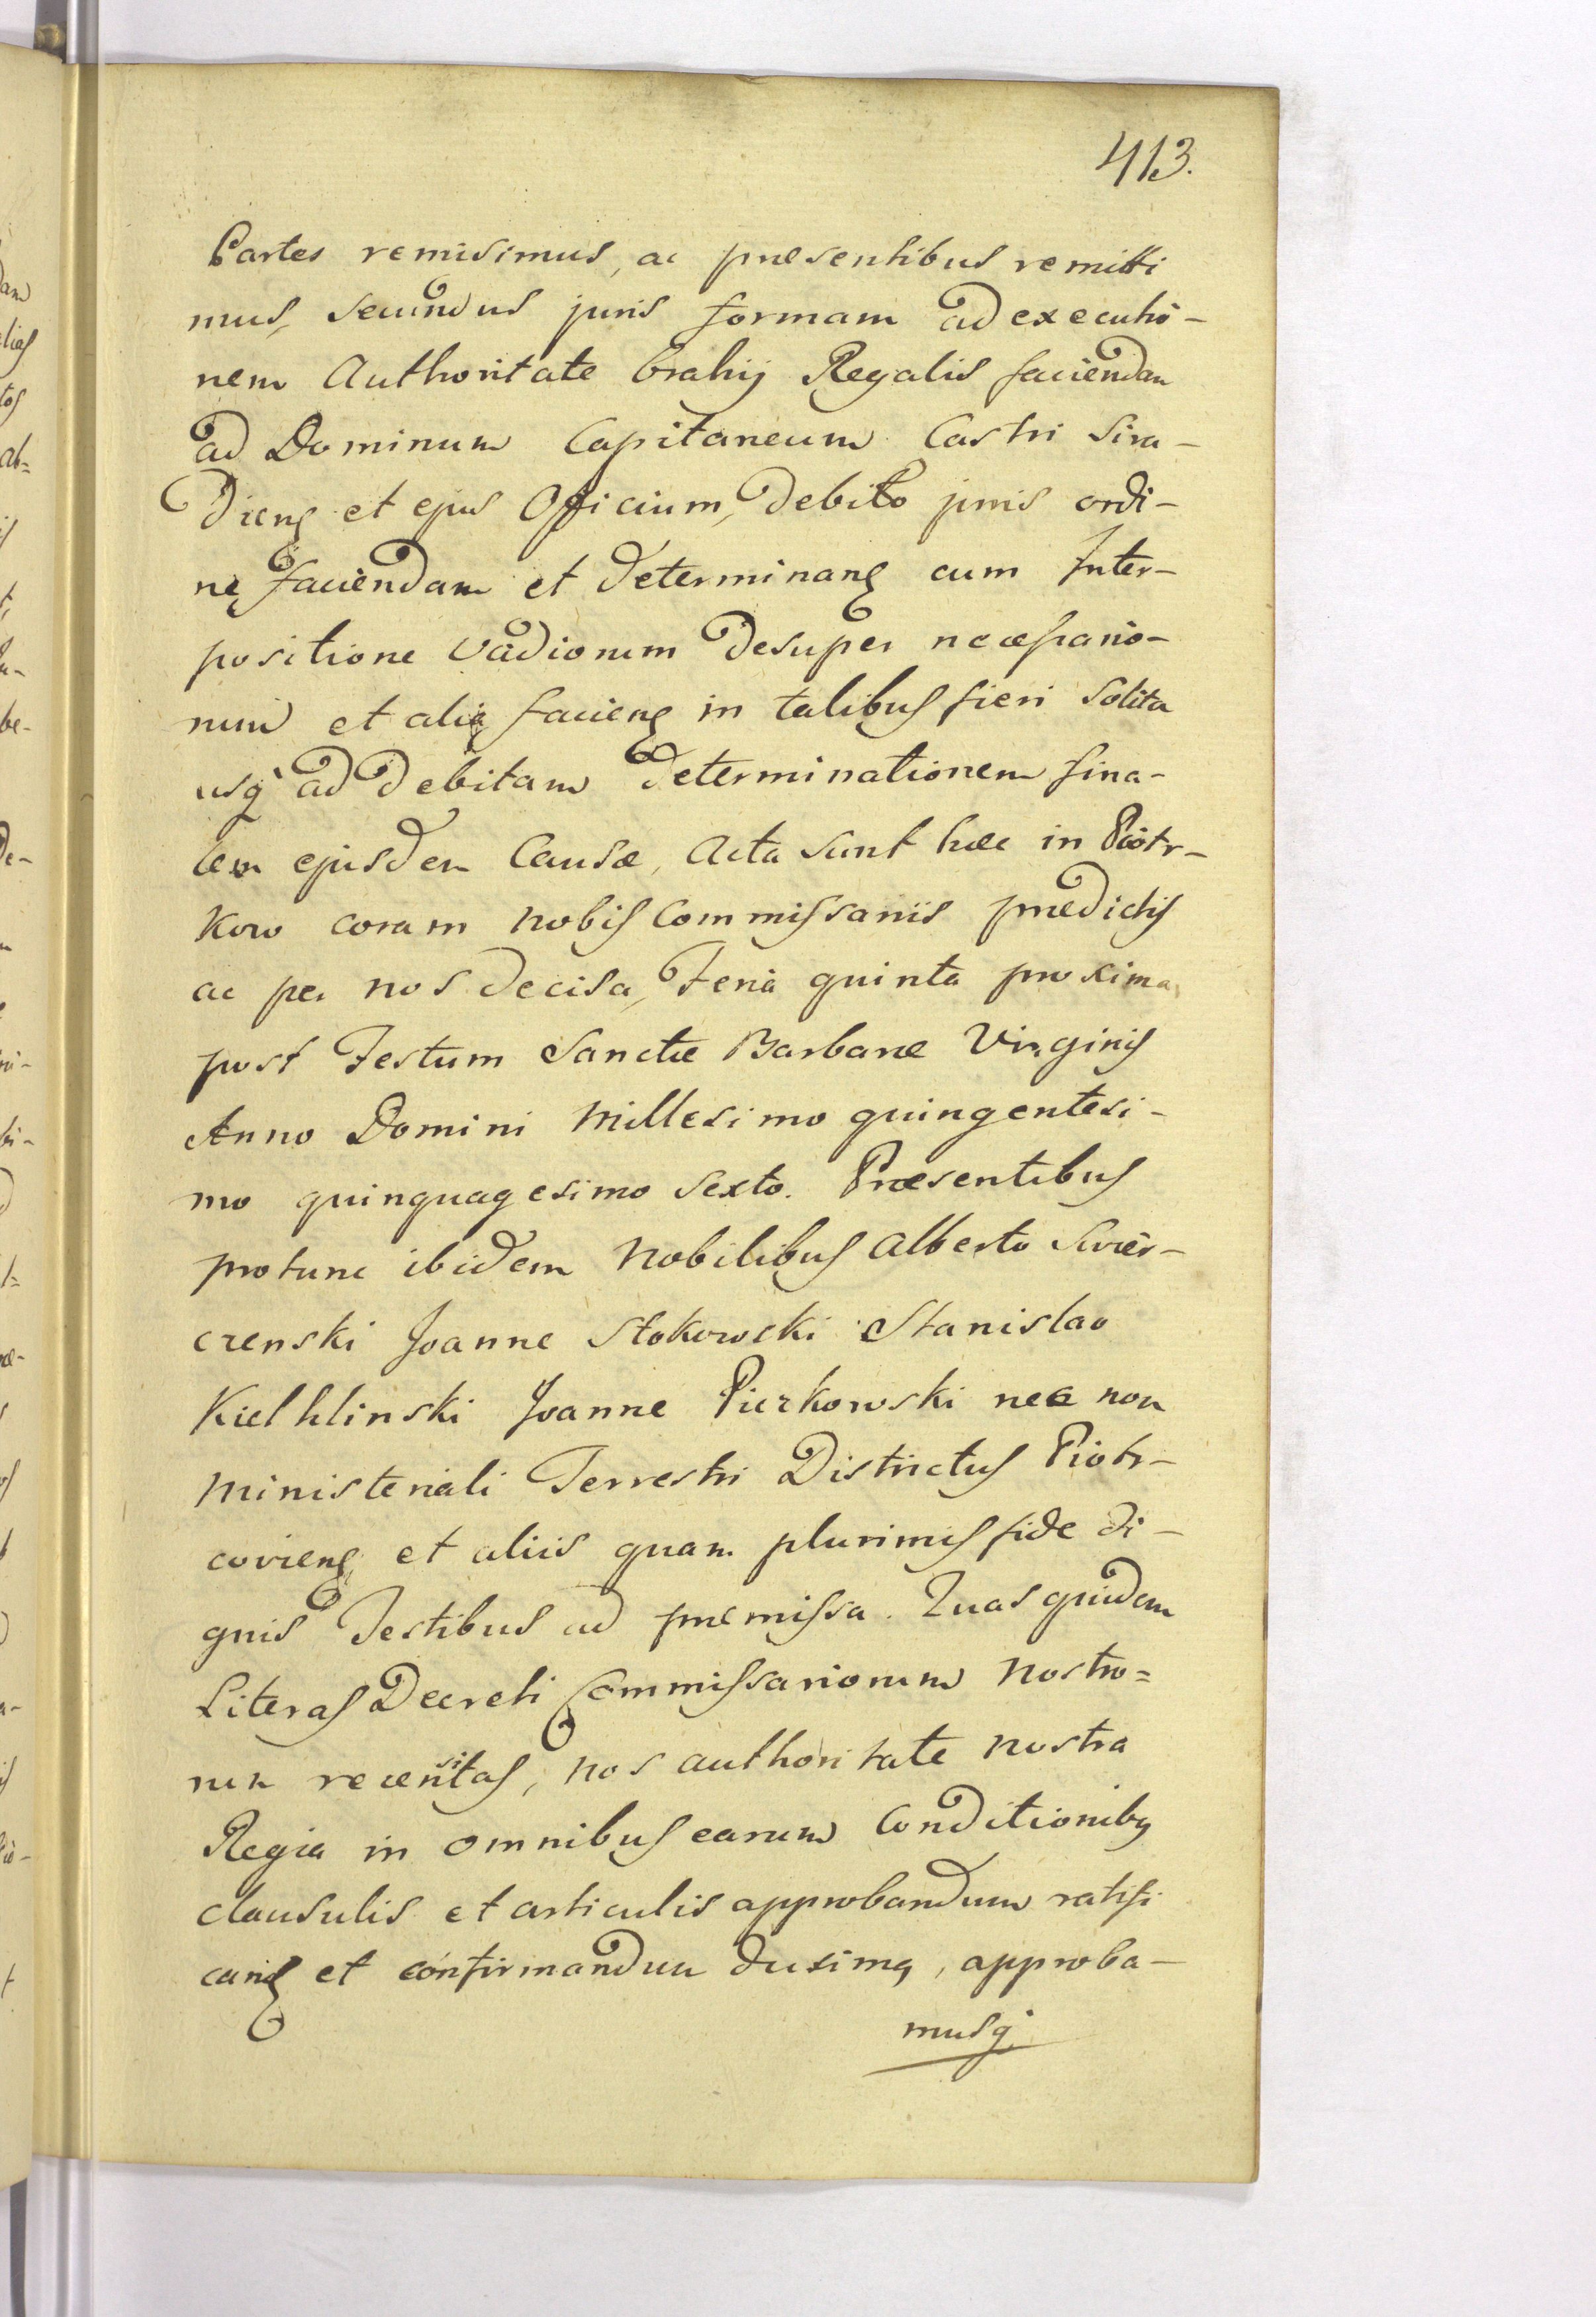 413.
Partes remisimus, ac præsentibus remitti
mus, secundus juris formam ad executio-
nem Authoritate brahij Regalis faciendam
ad Dominum Capitaneum Castri Sira-
dieng et ejus Officium, debito juris ordi-
ne faciendam et determinang cum Inter-
positione vadiorum desuper necessario-
rum et alia facieng in talibus fieri solita
usq ad debitam determinationem fina-
lem ejusdem Causæ, Acta sunt hæc in Piotr-
kow coram nobis Commissariis prædictis
ac per nos decisa, Feria quinta proxima
post Festum Sanctæ Barbaræ Virginis
Anno Domini Millesimo quingentesi-
mo quinquagesimo sexto. Præsentibus
protunc ibidem Nobilibus Alberto Swier-
czenski Joanne Stokowski Stanislao
Kielhlinski Joanne Piczkowski nec non
Ministeriali Terrestri Districtus Piotr-
covieng et aliis quam plurimis fide di-
gnis Testibus ad præmissa. Quas quidem
Literas Decreti Commissariorum nostro=
rum recensitas, nos authoritate nostra
Regia in omnibus earum Conditionibq
clausulis et articulis approbandum ratifi
cang et confirmandum duximq, approba-
musq